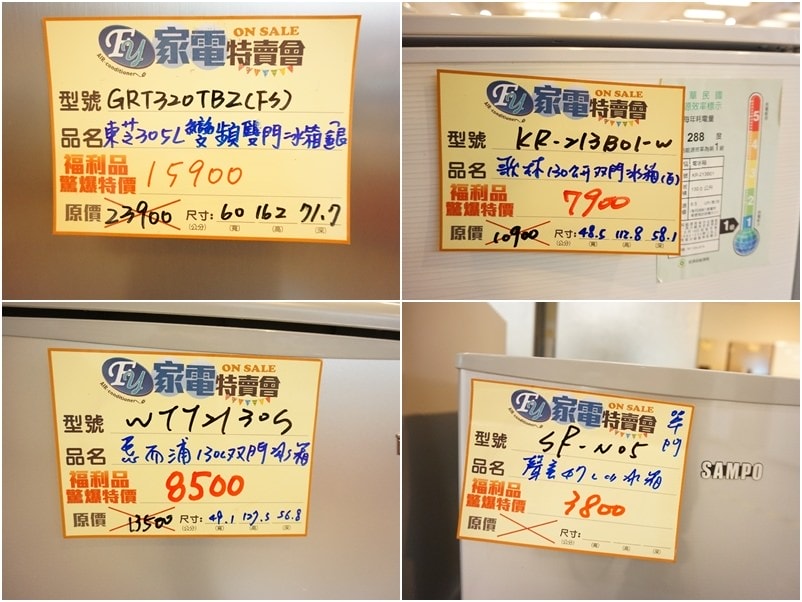 Fu 家電特賣會 ON SALE
AIR-conditioner
型號 GRT320TBZ(FS)
品名 東芝305L變頻雙門冰箱銀
福利品
驚爆特價 15900
原價 23900 尺寸: 60 162 71.7
(公分) (寬) (高) (深)
Fu 家電特賣會 ON SALE
AIR-conditioner
型號 KR-213B01-W
品名 歌林130公升双門冰箱(白)
福利品
驚爆特價 7900
原價 10900 尺寸: 48.5 112.8 58.1
(公分) (寬) (高) (深)
華民國
每年耗電量
288 度
5
4
3
2
1
1級
Fu 家電特賣會 ON SALE
AIR-conditioner
型號
品名 惠而浦130L双門冰箱
福利品
驚爆特價 8500
原價 13500 尺寸: 49.1 127.5 56.8
(公分) (寬) (高) (深)
Fu 家電特賣會 ON SALE
AIR-conditioner
單門
型號 SR-N05
品名 聲寶47L 冰箱
福利品
驚爆特價 3800
原價 尺寸:
(公分) (寬) (高) (深)
SAMPO